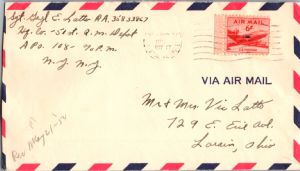 Sgt. Geo. E. Latto R.A. 35833867
Hq. Co.- 51st. a.m. Depot
A P.O. 108 - % P.M.
N.Y. N.Y.
AIR MAIL
6¢
VIA AIR MAIL
Mr & Mrs. Vic Latto
729 E. Erie Ave.
Lorain, Ohio
Rec May 21-52